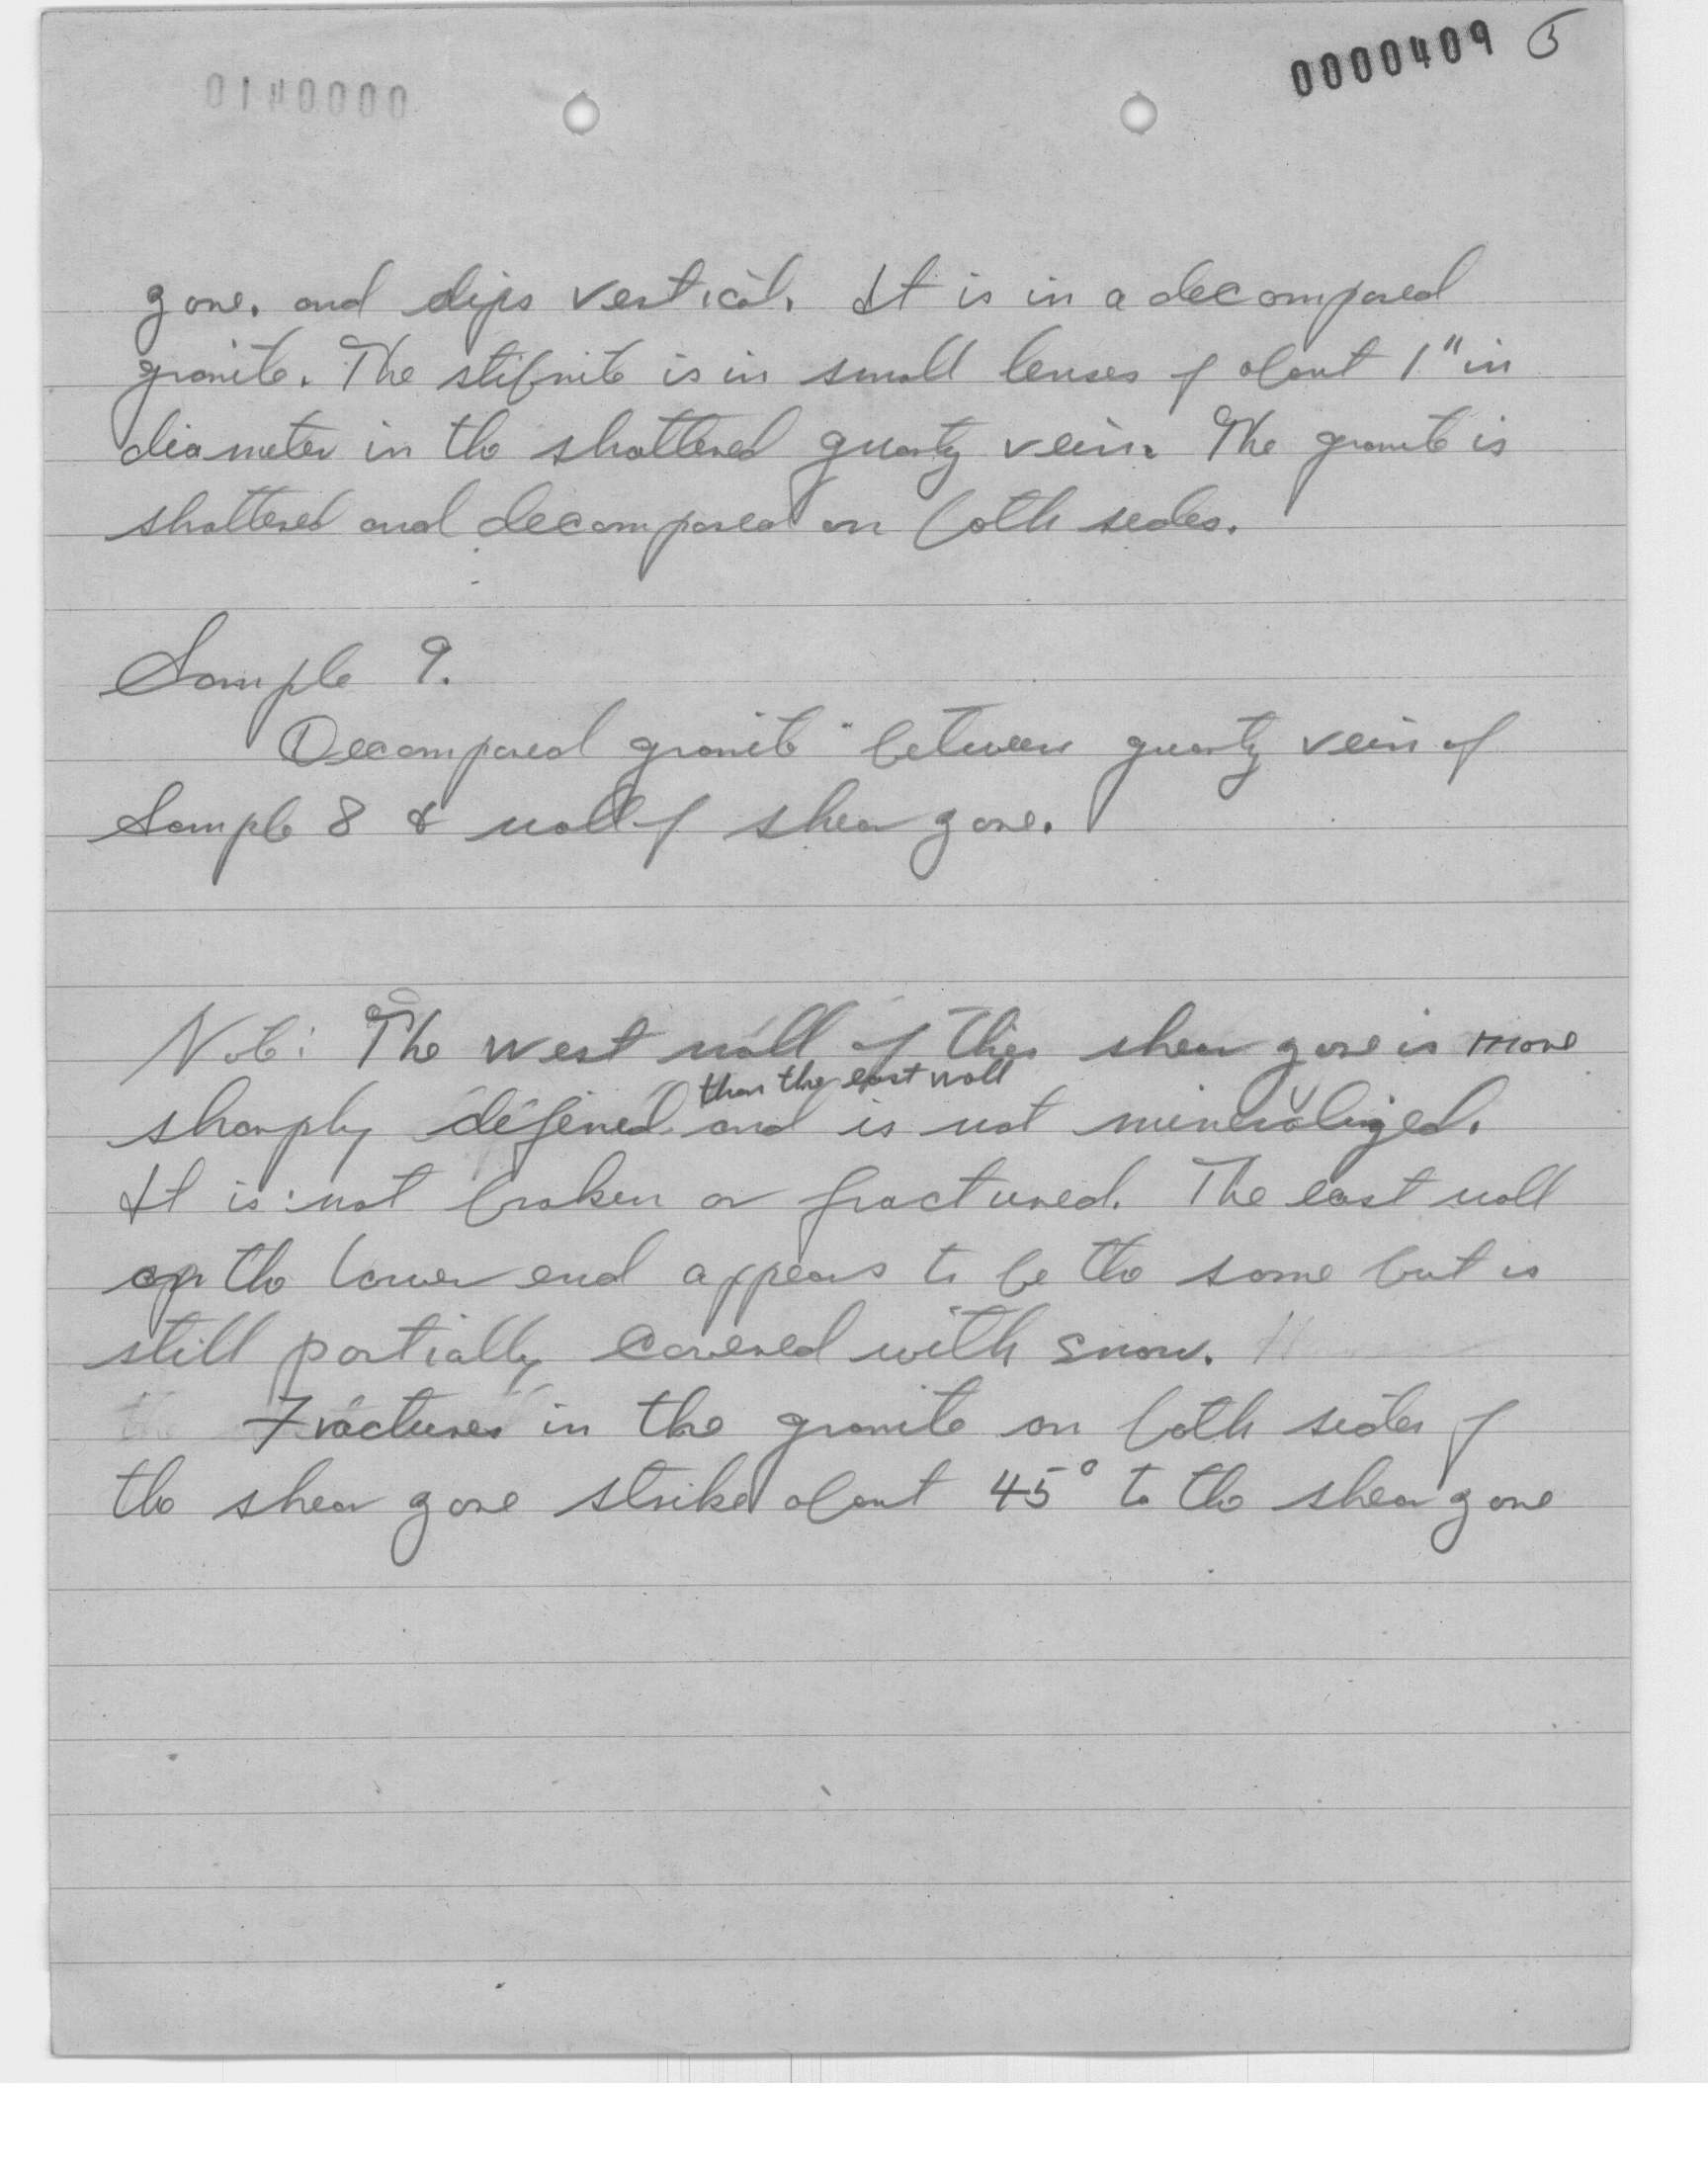 0000409 5
zone. and dips vertical. It is in a decomposed
granite. The stibnite is in small lenses of about 1" in
diameter in the shattered quartz vein. The granite is
shattered and decomposed on both sides.
Sample 9.
Decomposed granite between quartz vein of
Sample 8 & wall of shear zone.
Note: The west wall of this shear zone is more
than the east wall
sharply defined and is not mineralized.
It is not broken or fractured. The east wall
on the lower end appears to be the same but is
still partially covered with snow.
Fractures in the granite on both sides of
the shear zone strike about 45° to the shear zone